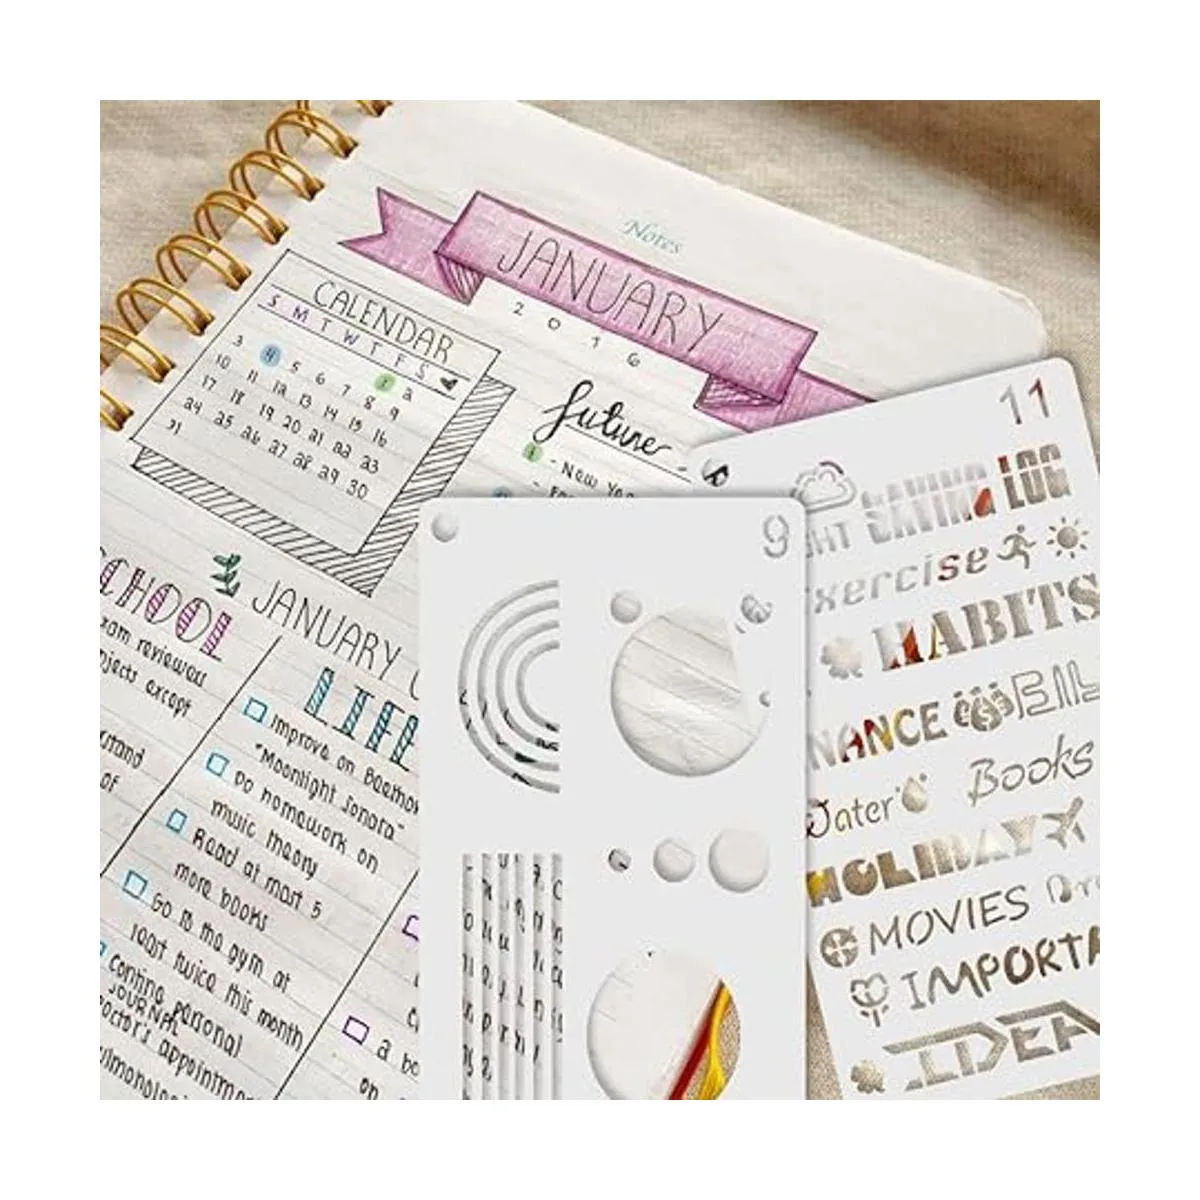 Notes
JANUARY
2016
CALENDAR
S M T W T F S
1 2
3 4 5 6 7 8 9
10 11 12 13 14 15 16
17 18 19 20 21 22 23
24 25 26 27 28 29 30
31
future
1 - NEW YEA
SCHOOL
exam reviewers
objects except
of
JANUARY
LIFE
Improve on Beethov
"Moonlight Sonata"
Do homework on
music theory
Read at most 5
more books
Go to the gym at
least twice this month
personal
JOURNAL
doctor's appointment
a bo
on
9
11
SAVING LOG
HT
Exercise
HABITS
NANCE
BIL
Water
Books
HOLIDAY
MOVIES
IMPORTA
IDEA